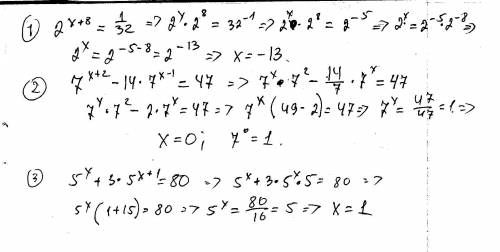 ① 2^{x+8} = 1/32 => 2^x · 2^8 = 32^{-1} => 2^x · 2^8 = 2^{-5} => 2^x = 2^{-5} · 2^{-8} =>
2^x = 2^{-5-8} = 2^{-13} => x = -13.
② 7^{x+2} - 14 · 7^{x-1} = 47 => 7^x · 7^2 - 14/7 · 7^x = 47
7^x · 7^2 - 2 · 7^x = 47 => 7^x (49 - 2) = 47 => 7^x = 47/47 = 1 =>
x = 0; 7^0 = 1.
③ 5^x + 3 · 5^{x+1} = 80 => 5^x + 3 · 5^x · 5 = 80 =>
5^x (1 + 15) = 80 => 5^x = 80/16 = 5 => x = 1